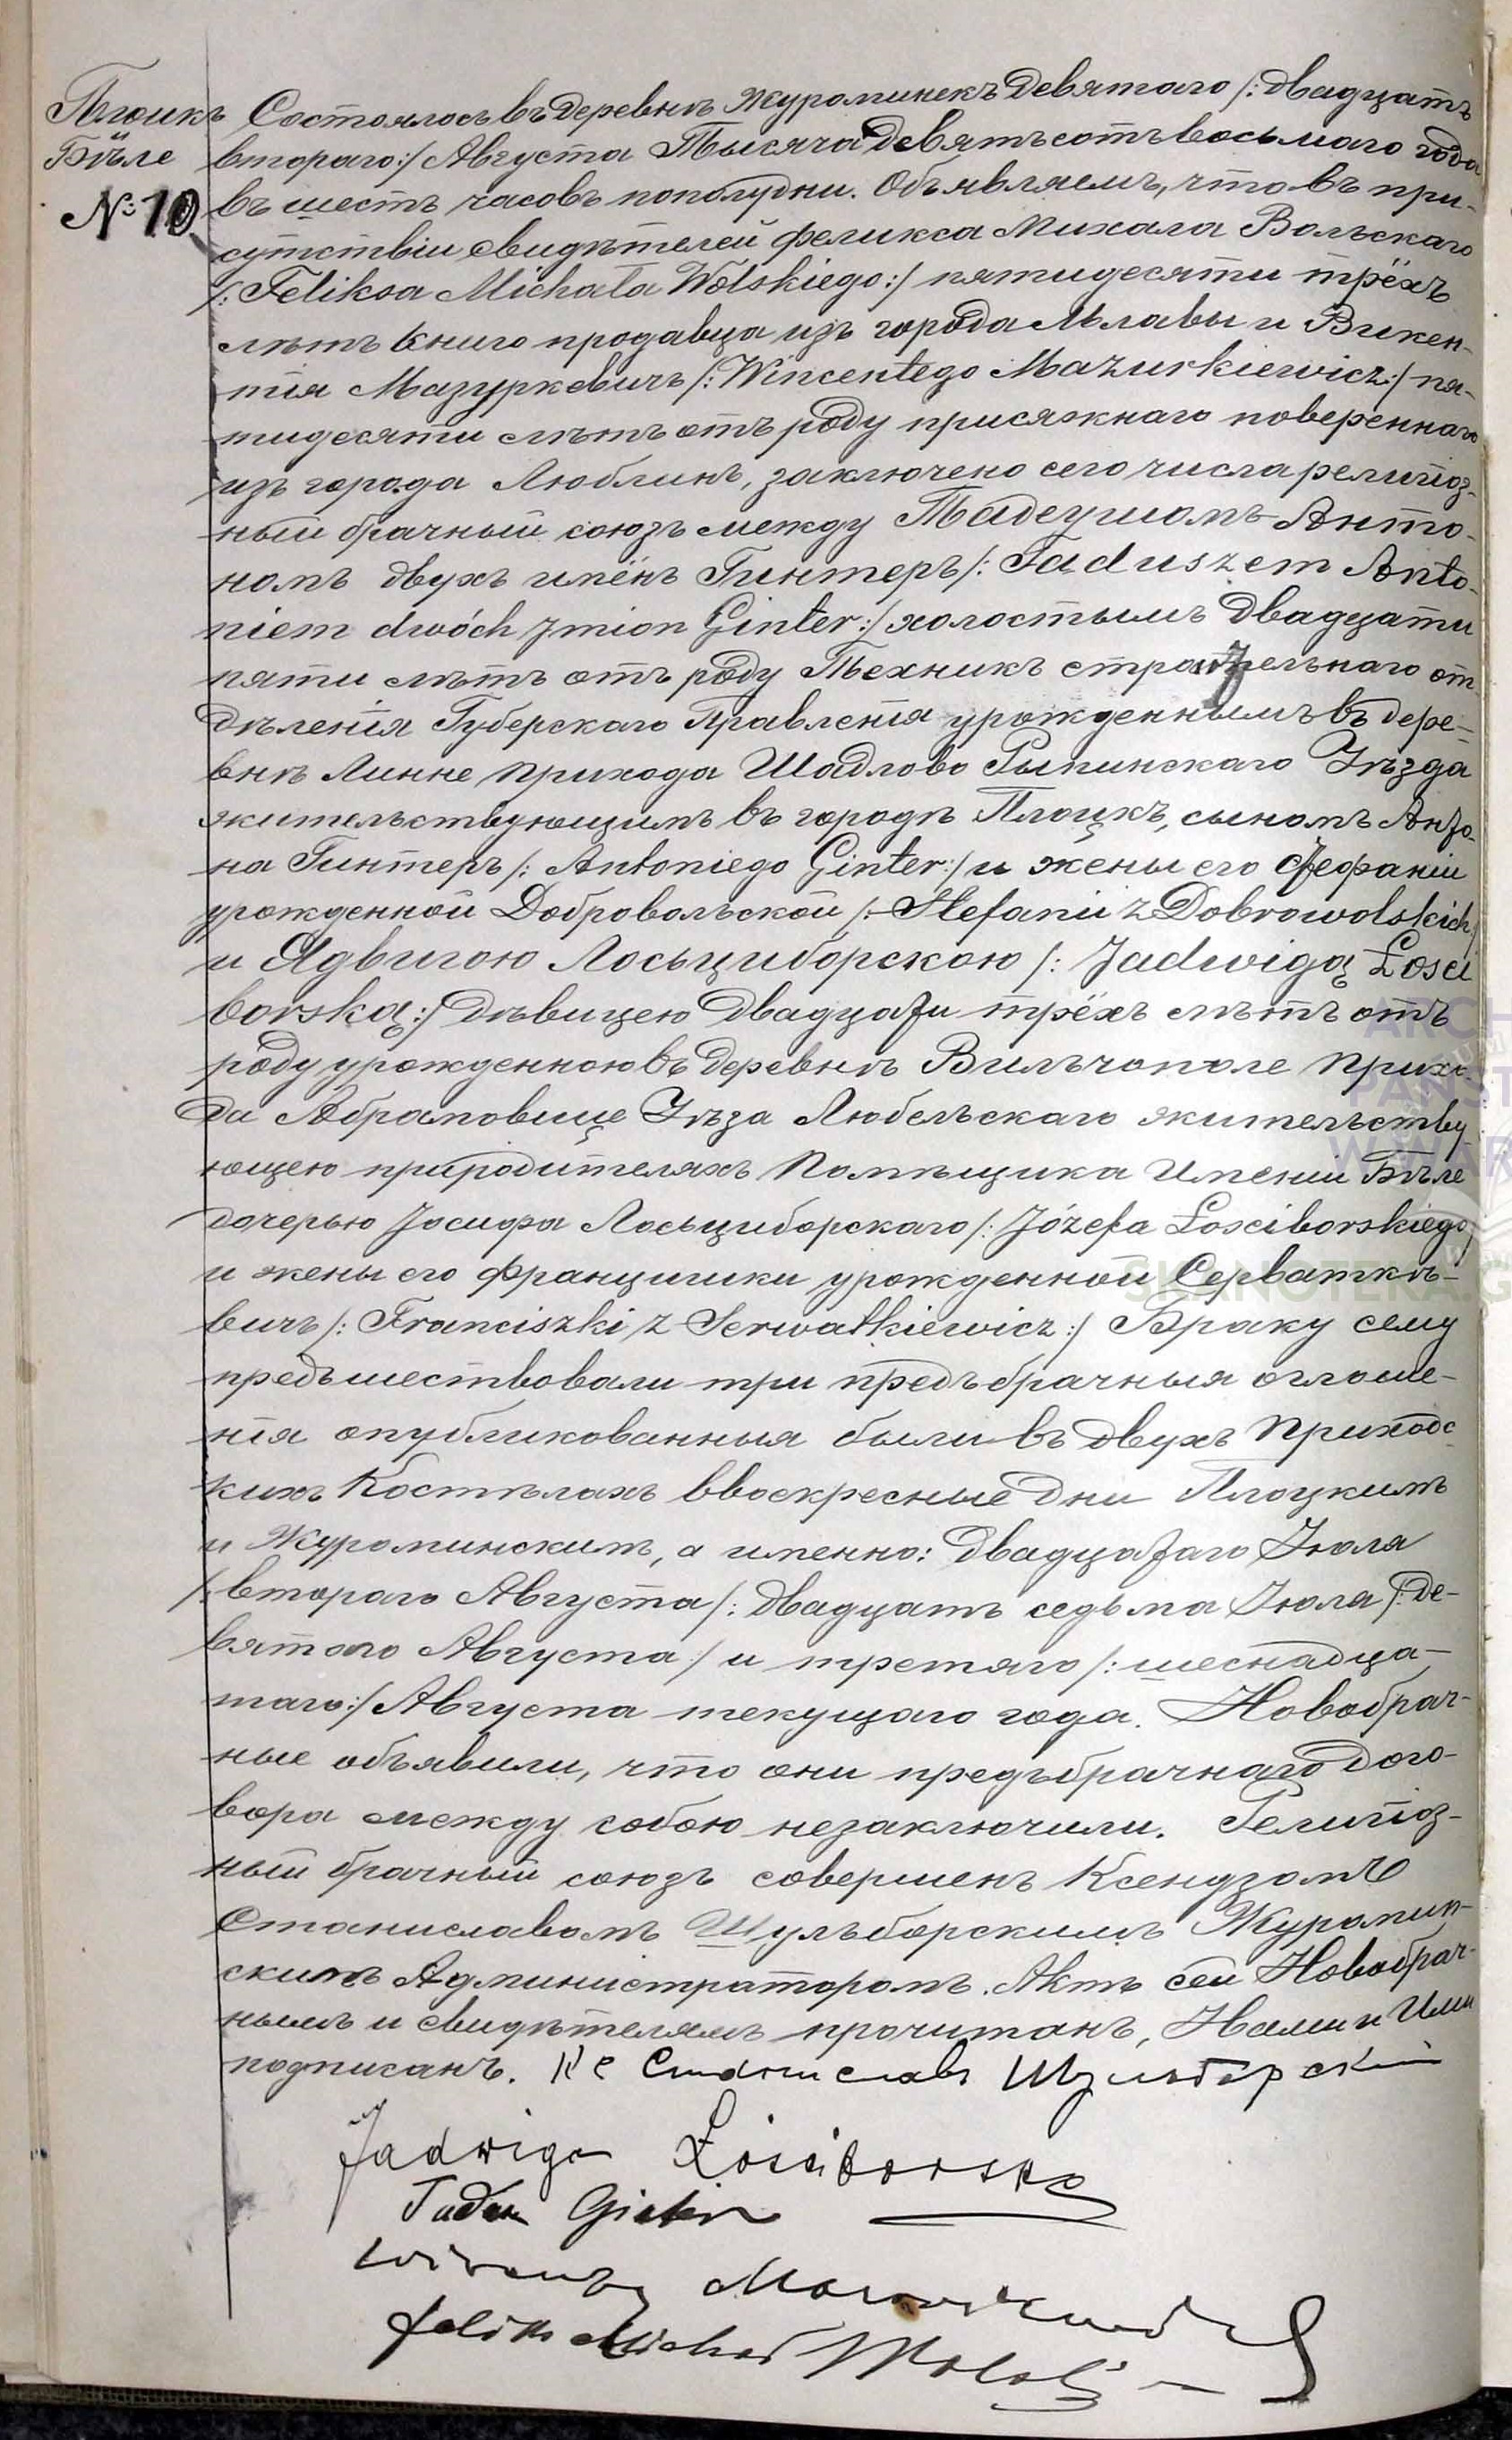 Плоцкъ
Бѣле
№ 10
Состоялось въ деревнѣ Журоминекъ Девятаго /: двадцать
втораго:/ Августа Тысяча девятьсотъ восьмаго года
въ шесть часовъ пополудни. Объявляемъ, что въ при-
сутствіи свидѣтелей Феликса Михала Вольскаго
/: Feliksa Michała Wolskiego:/ пятидесяти трёхъ
лѣтъ книго продавца изъ города Млавы и Викен-
тія Мазуркевичъ /: Wincentego Mazurkiewicz:/ пя-
тидесяти лѣтъ отъ роду присяжнаго повереннаго
изъ города Люблинъ, заключено сего числа религіоз-
ный брачный союзъ между Тадеушомъ Анто-
номъ двухъ имёнъ Гинтеръ /: Taduszem Anto-
niem dwóch Jmion Ginter:/ холостымъ двадцати
пяти лѣтъ отъ роду Техникъ строительнаго от-
дѣленія Губерскаго Правленія урожденнымъ въ дере-
внѣ Линне прихода Шадлово Рыпинскаго Уѣзда
жительствующимъ въ городѣ Плоцкъ, сыномъ Анто-
на Гинтеръ /: Antoniego Ginter:/ и жены его Стефаніи
урожденной Добровольской /: Stefanii z Dobrowolskich/
и Ядвигою Лосьциборскою /: Jadwigą Łosci
borską:/ дѣвицею двадцати трёхъ лѣтъ отъ
роду урожденною въ деревнѣ Вильчополе прихо-
да Абрамовице Уѣза Любельскаго жительству
ющею при родителяхъ Помѣщика Имѣній Бѣле
дочерью Іосифа Лосьциборскаго /: Józefa Łosciborskiego/
и жены его Францишки урожденной Серваткѣ-
вичъ /: Franciszki z Serwatkiewicz:/ Браку сему
предъшествовали три предъбрачныя оглоше-
нія опубликованныя были въ двухъ Приходс
кихъ Костѣлахъ ввоскресные дни Плоцкимъ
и Журоминскимъ, а именно: двадцатаго Іюля
/: втораго Августа /: двадцать седьма Іюля /: де-
вятаго Августа:/ и третяго /: шеснадца-
таго:/ Августа текущаго года. Новобрач-
ные объявили, что они предъбрачнаго дого-
вора между собою незаключили. Религіоз-
ный брачный союзъ совершенъ Ксендзомъ
Станиславомъ Шульборскимъ Журомин-
скимъ Администраторомъ. Актъ сей Новобрач-
нымъ и свидѣтелямъ прочитанъ, Нами и Ими
подписанъ. Кс Станиславъ Шульборскій
Jadwiga Łosciborska
Tadeu Ginter
Wincenty Mazurkiewicz
Feliks Michał Wolski